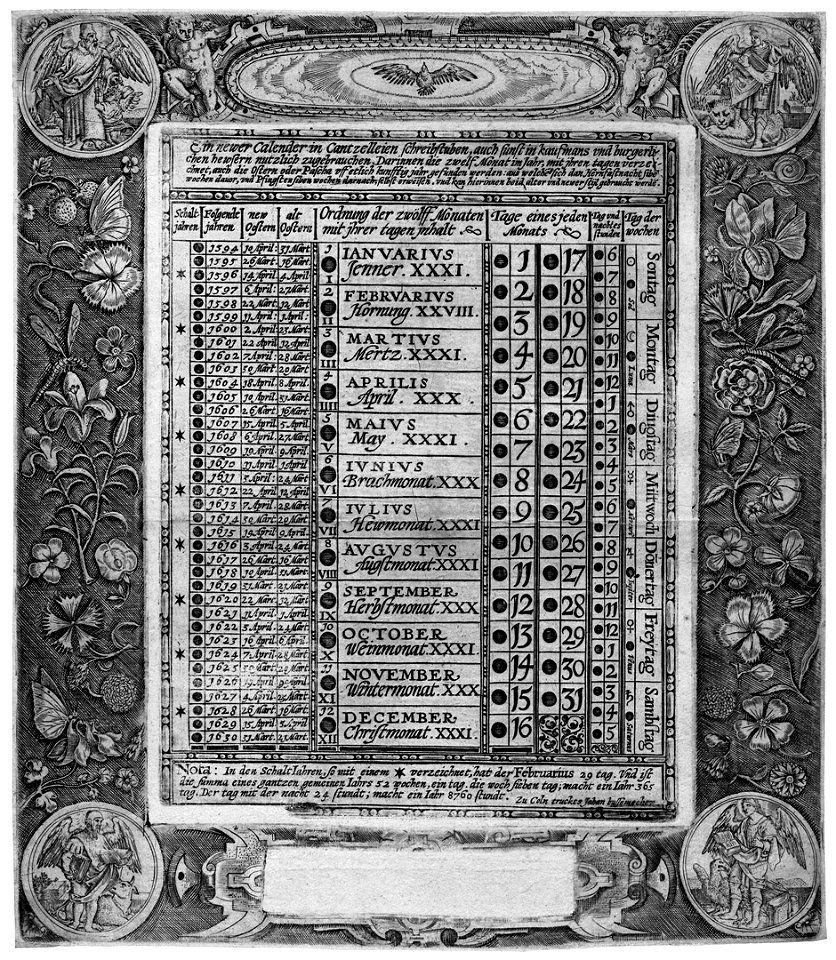 Ein newer Calender in Cantzelleien schreibstuben, auch sunst in kaufmans vnd burgerli-
chen hewsern nutzlich zugebrauchen, Darinnen die zwelf Monat im Jahr, mit ihren tagen verzei-
chnet, auch die Ostern oder Pascha vff etlich kunfftig jahr gefunden werden: aus welche sich dan,
wochen dauor, vnd Pfingsten siben wochen darnach, selbst erweisen, vnd kan hierinnen beid alter vnd newer styl gebraucht werdē.
Schalt- jahren
Folgende jahren
new Ostern
alt Ostern
Ordnung der zwölff Monaten mit jhrer tagen jnhalt
Tage eines jeden Monats
Tag und nachtes stunden
Tag der wochen
1594 10 April. 31 Mart.
1595 26 Mart. 16 Mart.
✶ 1596 14 April 4 April
1597 6 April. 27 Mart.
1598 22 Mart. 12 Mart.
1599 11 April. 1 April.
✶ 1600 2 April. 23 Mart.
1601 22 April 12 April
1602 7 April. 28 Mart.
1603 30 Mart 20 Mart.
✶ 1604 18 April 8 April.
1605 10 April. 31 Mart.
1606 26 Mart. 16 Mart.
1607 15 April. 5 April.
✶ 1608 6 April. 27 Mart.
1609 19 April. 9 April.
1610 11 April. 1 April
1611 3 April. 24 Mart.
✶ 1612 22 April 12 April
1613 7 April. 28 Mart.
1614 30 Mart. 20 Mart.
1615 19 April 9 April.
✶ 1616 3 April. 24 Mart.
1617 26 Mart. 16 Mart.
1618
1619 31 Mart. 21 Mart.
✶ 1620
1621 11 April. 1 April.
1622
1623 16 April 6 April.
✶ 1624 7 April. 28 Mart.
1625 30 Mart.
1626
1627 4 April.
✶ 1628
1629 15 April. 5 April.
1630 31 Mart. 21 Mart.
1 I IANVARIVS
Jenner. XXXI.
2 II FEBRVARIVS
Hornung. XXVIII.
3 III MARTIVS
Mertz. XXXI.
4 IIII APRILIS
April. XXX.
5 V MAIVS
May. XXXI.
6 VI IVNIVS
Brachmonat. XXX
7 VII IVLIVS
Hewmonat. XXXI
8 VIII AVGVSTVS
Augstmonat. XXXI
9 IX SEPTEMBER
Herbstmonat. XXX
10 X OCTOBER
Weinmonat. XXXI.
11 XI NOVEMBER
Wintermonat. XXX
12 XII DECEMBER
Christmonat. XXXI.
1 17
2 18
3 19
4 20
5 21
6 22
7 23
8 24
9 25
10 26
11 27
12 28
13 29
14 30
15 31
16
6
7
8
9
10
11
12
1
2
3
4
5
6
7
8
9
10
11
12
1
2
3
4
5
Sontag
☉ Sol
Montag
☾ Luna
Dingstag
♂
Mittwoch
☿
Donertag
♃
Freytag
♀
Sambstag
♄
Nota: In den Schalt Iahren, so mit einem ✶ verzeichnet, hat der Februarius 29 tag. Vnd ist
die summa eines gantzen gemeinen Iahrs 52 wochen, ein tag. die woch sieben tag; macht ein Iahr 365
tag. Der tag mit der nacht 24 stundt; macht ein Iahr 8760 stundt. Zu Cöln truckts Johan bussemacher.